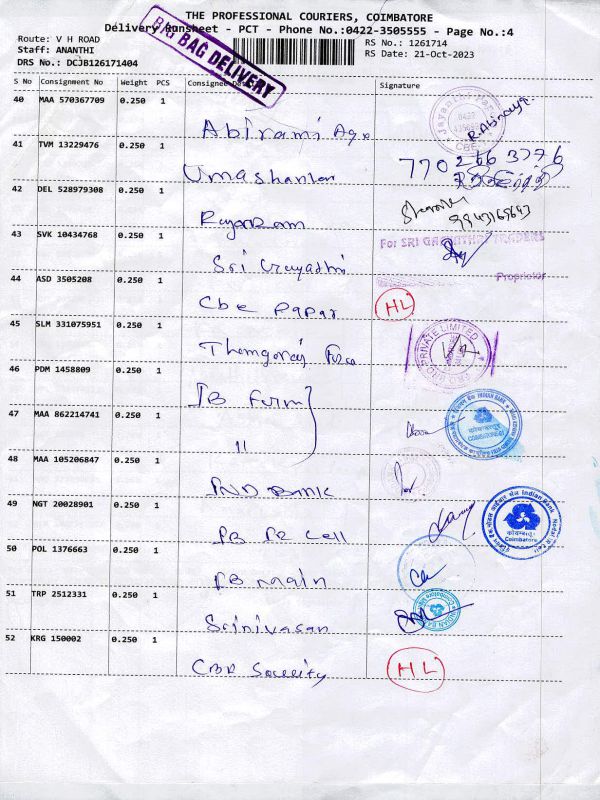 THE PROFESSIONAL COURIERS, COIMBATORE
Delivery Runsheet - PCT - Phone No.:0422-3505555 - Page No.:4
Route: V H ROAD
Staff: ANANTHI
DRS No.: DCJB126171404
RS No.: 1261714
RS Date: 21-Oct-2023
BIG BAG DELIVERY
S No Consignment No Weight PCS Consignee Signature
40 MAA 570367709 0.250 1 Abirami
R. Abinaya
41 TVM 13229476 0.250 1 Umashankar
42 DEL 528979308 0.250 1
9943169643
43 SVK 10434768 0.250 1 Sri
For SRI GAYATHRI TRADERS
Proprietor
44 ASD 3505208 0.250 1 Cbe Papar HL
45 SLM 331075951 0.250 1
PRIVATE LIMITED
46 PDM 1458809 0.250 1 IB Furm
47 MAA 862214741 0.250 1 11
INDIAN BANK
COIMBATORE
48 MAA 105206847 0.250 1 IND BANK
49 NGT 20028901 0.250 1 cell
इंडियन बैंक Indian Bank
कोयम्बत्तूर
Coimbatore
50 POL 1376663 0.250 1 IB main
51 TRP 2512331 0.250 1 Srinivasan
52 KRG 150002 0.250 1 HL